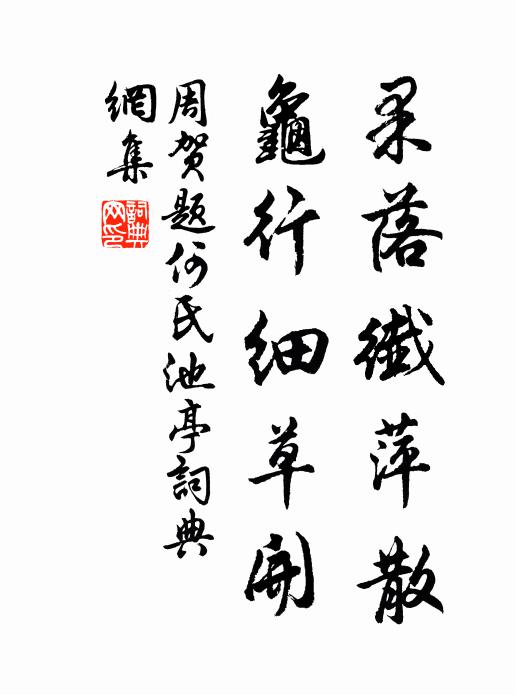 果落纖萍散
龜行細草開
周賀題何氏池亭詞典
網集
詞典網印